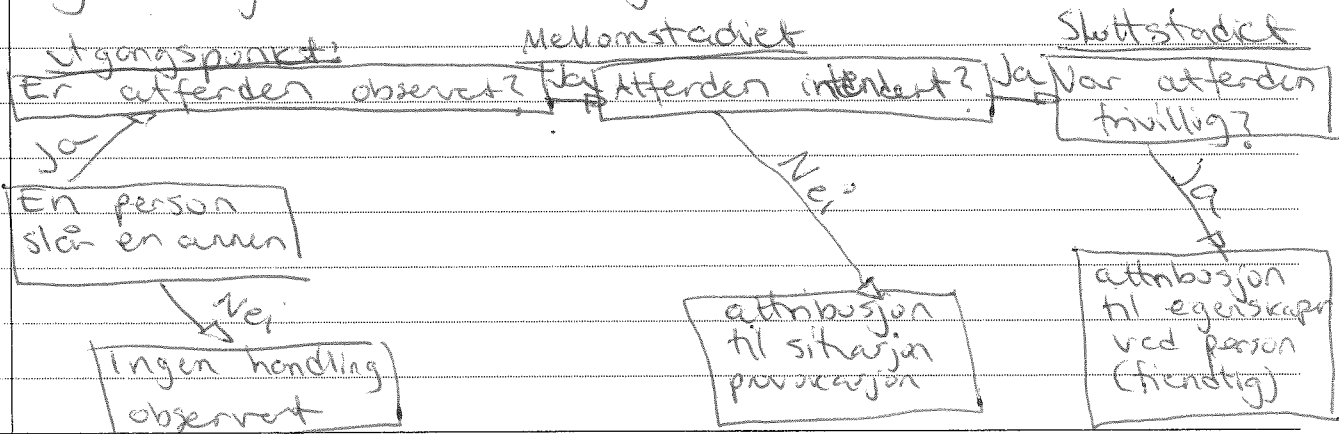 Utgangspunkt:
Mellomstadiet
Sluttstadiet
Er atferden observert?
Ja
Atferden intendert?
Ja
Var atferden
frivillig?
Ja
En person
slår en annen
Nei
Ingen handling
observert
Nei
attribusjon
til situasjon
provokasjon
Ja
attribusjon
til egenskaper
ved person
(fiendtlig)